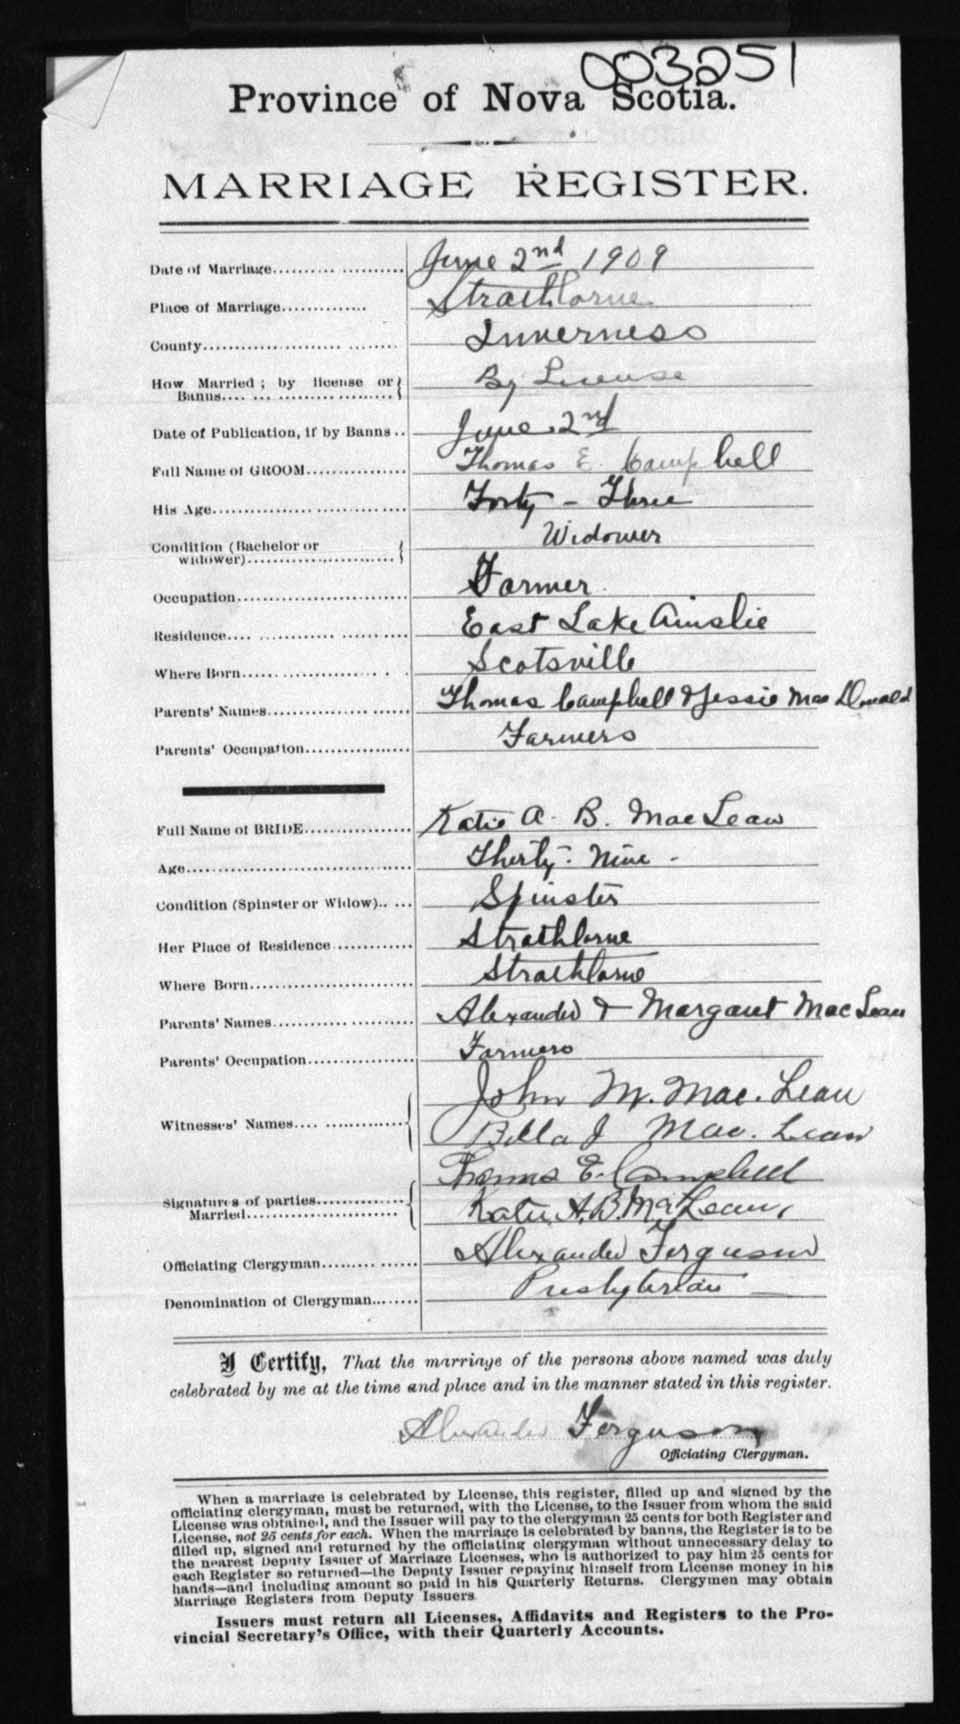 003251
Province of Nova Scotia.
MARRIAGE REGISTER.
Date of Marriage.................... June 2nd 1909
Place of Marriage............. Strathlorne
County............................. Inverness
How Married; by license or
Banns............................ By License
Date of Publication, if by Banns.. June 2nd
Full Name of GROOM............... Thomas E. Campbell
His Age............................. Forty - Three
Condition (Bachelor or
widower)........................ Widower
Occupation.......................... Farmer
Residence........................... East Lake Ainslie
Where Born.......................... Scotsville
Parents' Names..................... Thomas Campbell & Jessie MacDonald
Parents' Occupation............... Farmers
Full Name of BRIDE................ Katie A. B. MacLean
Age.................................. Thirty - Nine -
Condition (Spinster or Widow)..... Spinster
Her Place of Residence............ Strathlorne
Where Born.......................... Strathlorne
Parents' Names..................... Alexander & Margaret MacLean
Parents' Occupation............... Farmers
Witnesses' Names.................. John M. Mac.Lean
Bella J Mac.Lean
Thomas E. Campbell
Signatures of parties..............
Married......................... Katie A.B. MacLean,
Officiating Clergyman............. Alexander Ferguson
Denomination of Clergyman....... Presbyterian
I Certify, That the marriage of the persons above named was duly
celebrated by me at the time and place and in the manner stated in this register.
Alexander Ferguson
Officiating Clergyman.
When a marriage is celebrated by License, this register, filled up and signed by the
officiating clergyman, must be returned, with the License, to the Issuer from whom the said
License was obtained, and the Issuer will pay to the clergyman 25 cents for both Register and
License, not 25 cents for each. When the marriage is celebrated by banns, the Register is to be
filled up, signed and returned by the officiating clergyman without unnecessary delay to
the nearest Deputy Issuer of Marriage Licenses, who is authorized to pay him 25 cents for
each Register so returned—the Deputy Issuer repaying himself from License money in his
hands—and including amount so paid in his Quarterly Returns. Clergymen may obtain
Marriage Registers from Deputy Issuers
Issuers must return all Licenses, Affidavits and Registers to the Pro-
vincial Secretary's Office, with their Quarterly Accounts.